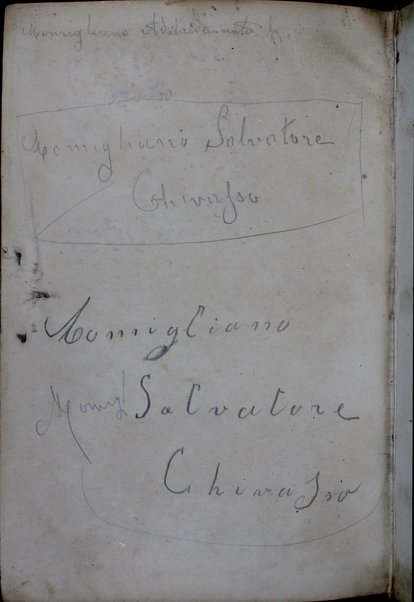 Momigliano Adelaide nata
Momigliano Salvatore
Chivasso
Momigliano
Momigl Salvatore
Chivasso